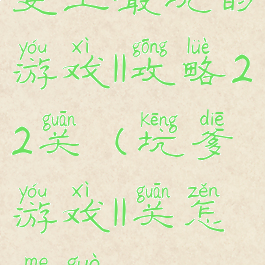 yóu xì gōng lüè
游戏11攻略2
guān kēng diē
2关（坑爹
yóu xì guān zěn
游戏11关怎
me guò